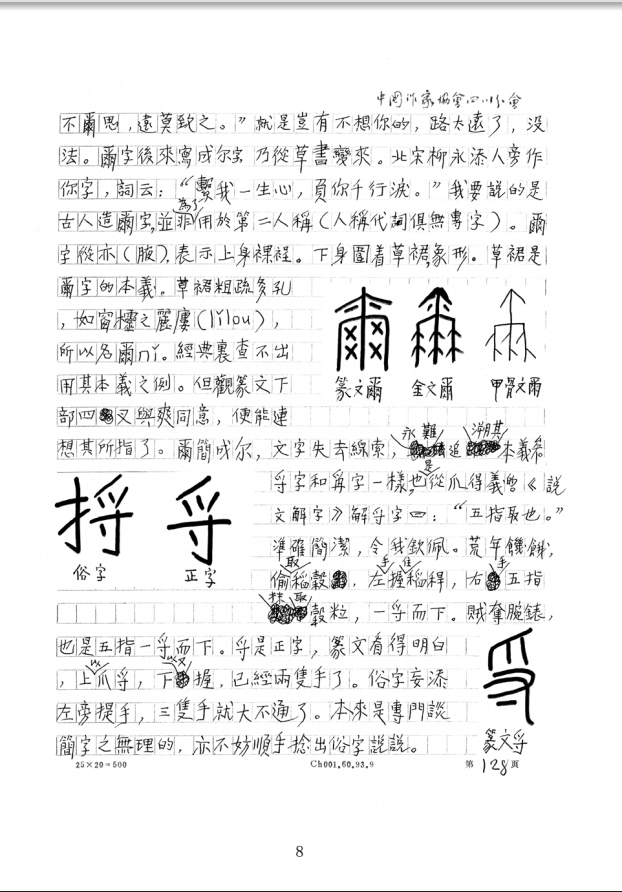 中国作家協會四川分會
不爾思，遠莫致之。”就是豈有不想你的，路太遠了，没
法。爾字後來寫成尔字乃從草書變來。北宋柳永添人旁作
你字，詞云：“繫我一生心，負你千行淚。”我要説的是
古人造爾字，並非為了用於第二人稱（人稱代詞俱無專字）。爾
字從亦（腋），表示上身裸裎。下身圍着草裙，象形。草裙是
爾字的本義。草裙粗疏多孔
，如窗櫺之麗廔（lǐlou），
所以名爾nǐ。經典裏查不出
用其本義之例。但觀篆文下
部四又與爽同意，便能連
篆文爾
金文爾
甲骨文爾
想其所指了。爾簡成尔，文字失去線索，永難追溯其本義
俗字
正字
寽字和爯字一樣，也是從爪得義《説
文解字》解寽字曰：“五指取也。”
準確簡潔，令我欽佩。荒年饑餓，
偷取稻穀，左手握住稻稈，右手五指
抹取穀粒，一寽而下。賊奪腕錶，
也是五指一寽而下。寽是正字，篆文看得明白
，上以爪寽，下以又握，已經兩隻手了。俗字妄添
左旁提手，三隻手就大不通了。本來是專門談
簡字之無理的，亦不妨順手捻出俗字説説。
篆文寽
25×20=500
Ch001.60.93.9
第128頁
8